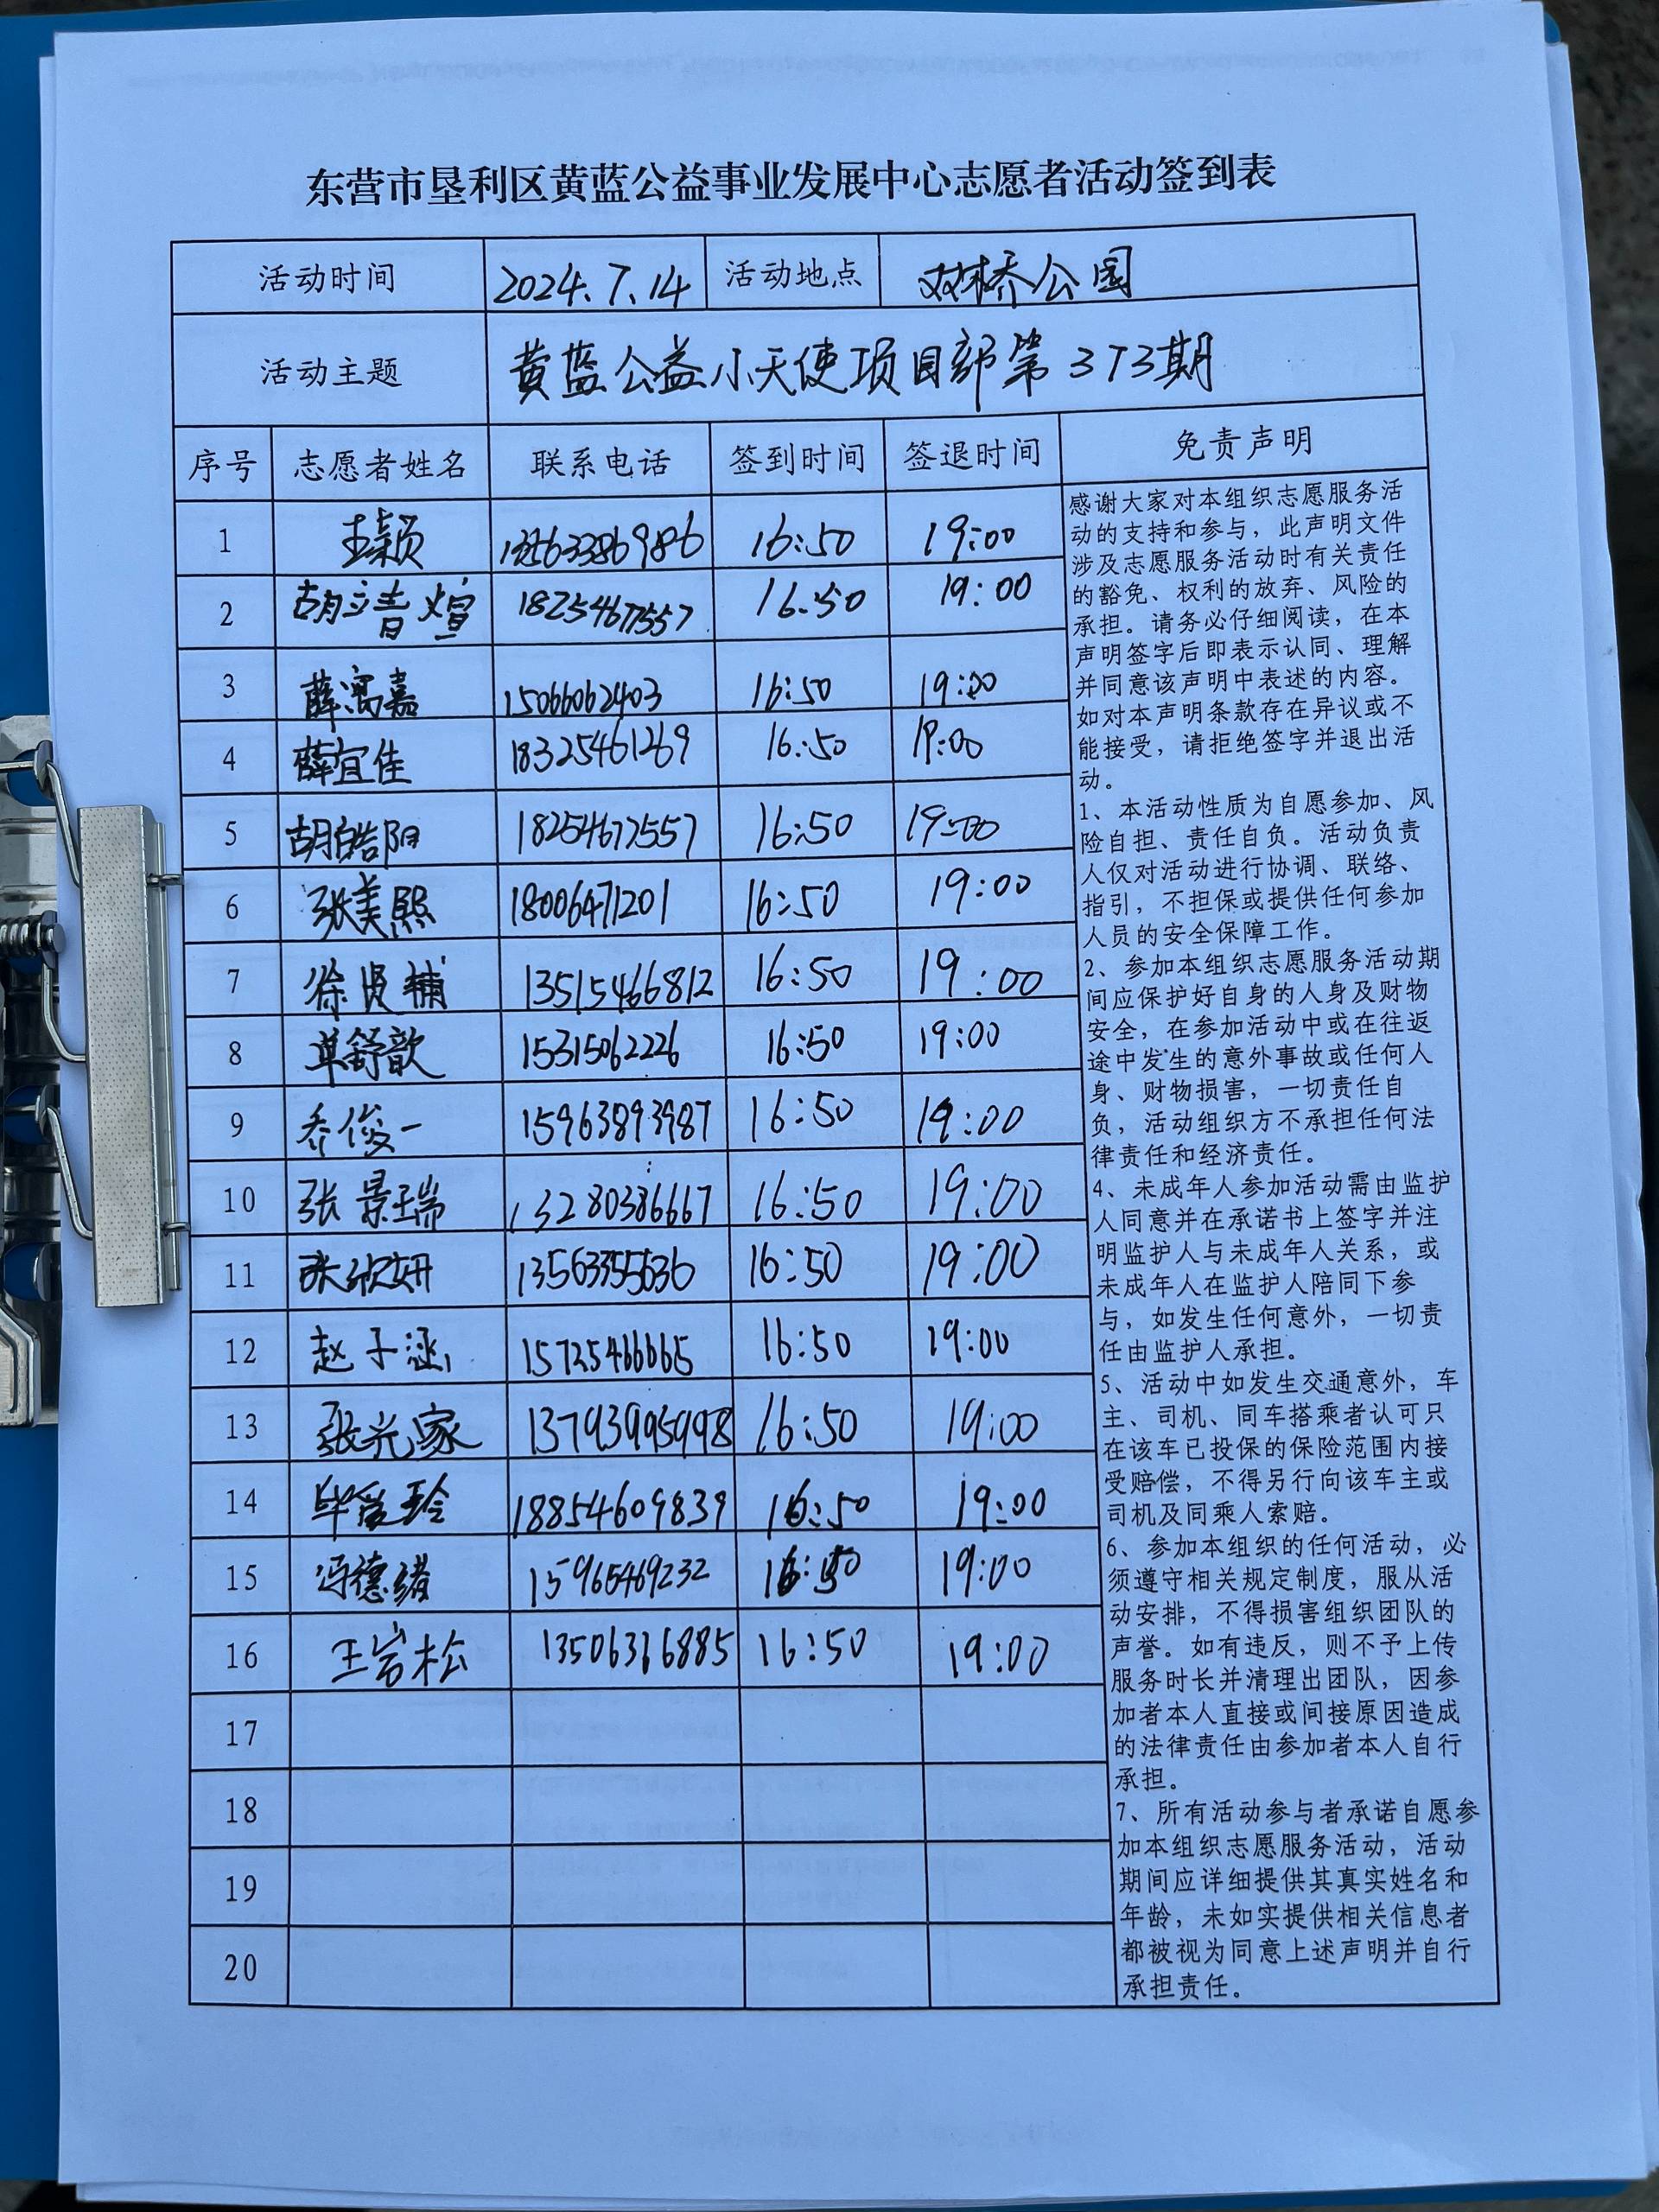 东营市垦利区黄蓝公益事业发展中心志愿者活动签到表
活动时间 2024.7.14 活动地点 双桥公园
活动主题 黄蓝公益小天使项目部第373期
序号 志愿者姓名 联系电话 签到时间 签退时间 免责声明
1 王颖 13563386986 16:50 19:00
2 胡立煊 18254677557 16:50 19:00
3 薛寓嘉 15066062403 16:50 19:00
4 薛宜佳 18325461269 16:50 19:00
5 胡皓阳 18254677557 16:50 19:00
6 张美熙 18006471201 16:50 19:00
7 徐贤辅 13515466812 16:50 19:00
8 单舒歆 15315062226 16:50 19:00
9 乔俊一 15963893987 16:50 19:00
10 张景瑞 13280386667 16:50 19:00
11 张欣妍 13563355636 16:50 19:00
12 赵子涵 15725466665 16:50 19:00
13 张光家 16:50 19:00
14 毕爱玲 18854609839 16:50 19:00
15 冯德绪 15965469232 16:50 19:00
16 王岩松 13506376885 16:50 19:00
17
18
19
20
感谢大家对本组织志愿服务活
动的支持和参与，此声明文件
涉及志愿服务活动时有关责任
的豁免、权利的放弃、风险的
承担。请务必仔细阅读，在本
声明签字后即表示认同、理解
并同意该声明中表述的内容。
如对本声明条款存在异议或不
能接受，请拒绝签字并退出活
动。
1、本活动性质为自愿参加、风
险自担、责任自负。活动负责
人仅对活动进行协调、联络、
指引，不担保或提供任何参加
人员的安全保障工作。
2、参加本组织志愿服务活动期
间应保护好自身的人身及财物
安全，在参加活动中或在往返
途中发生的意外事故或任何人
身、财物损害，一切责任自
负，活动组织方不承担任何法
律责任和经济责任。
4、未成年人参加活动需由监护
人同意并在承诺书上签字并注
明监护人与未成年人关系，或
未成年人在监护人陪同下参
与，如发生任何意外，一切责
任由监护人承担。
5、活动中如发生交通意外，车
主、司机、同车搭乘者认可只
在该车已投保的保险范围内接
受赔偿，不得另行向该车主或
司机及同乘人索赔。
6、参加本组织的任何活动，必
须遵守相关规定制度，服从活
动安排，不得损害组织团队的
声誉。如有违反，则不予上传
服务时长并清理出团队，因参
加者本人直接或间接原因造成
的法律责任由参加者本人自行
承担。
7、所有活动参与者承诺自愿参
加本组织志愿服务活动，活动
期间应详细提供其真实姓名和
年龄，未如实提供相关信息者
都被视为同意上述声明并自行
承担责任。